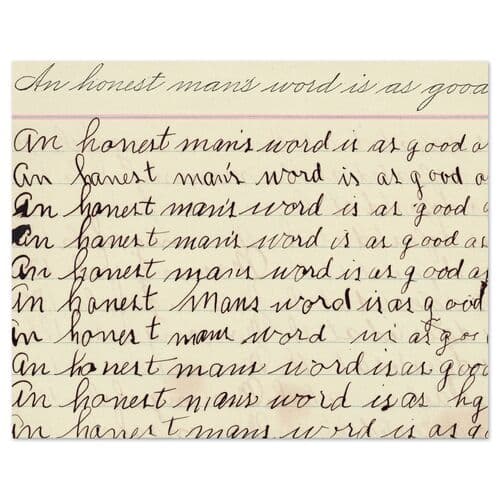 An honest man's word is as good
An honest man's word is as good a
An honest man's word is as good a
An honest man's word is as good a
An honest man's word is as good as
An honest man's word is as good as
An honest Mans word is as good
An honest mans word is as goo
An honest mans word is as good
An honest man's word is as hg
An honest man's word is as g